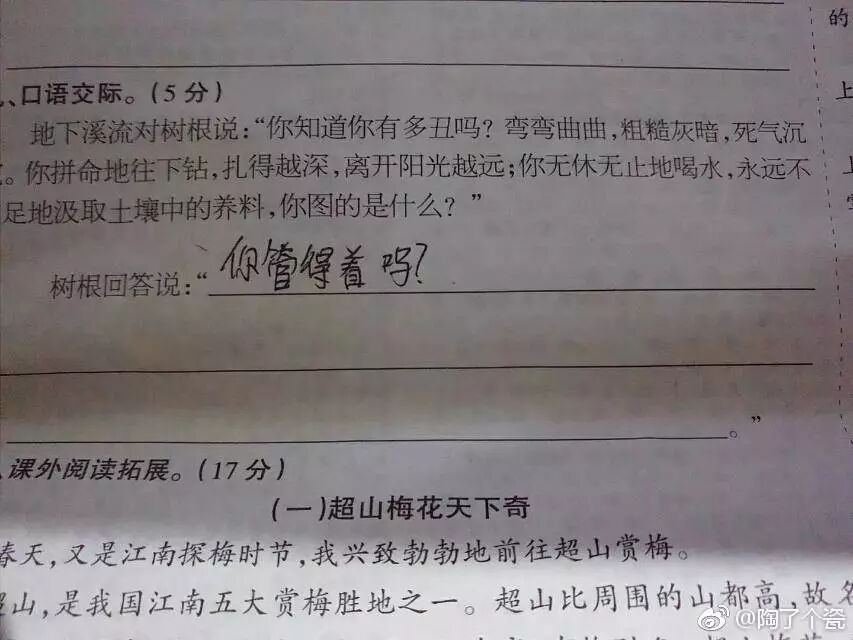 的
、口语交际。(5分)
上
地下溪流对树根说:“你知道你有多丑吗?弯弯曲曲,粗糙灰暗,死气沉
。你拼命地往下钻,扎得越深,离开阳光越远;你无休无止地喝水,永远不
上
足地汲取土壤中的养料,你图的是什么?”
树根回答说:“你管得着吗?
。”
、课外阅读拓展。(17分)
(一)超山梅花天下奇
春天,又是江南探梅时节,我兴致勃勃地前往超山赏梅。
超山,是我国江南五大赏梅胜地之一。超山比周围的山都高,故名
@陶了个瓷